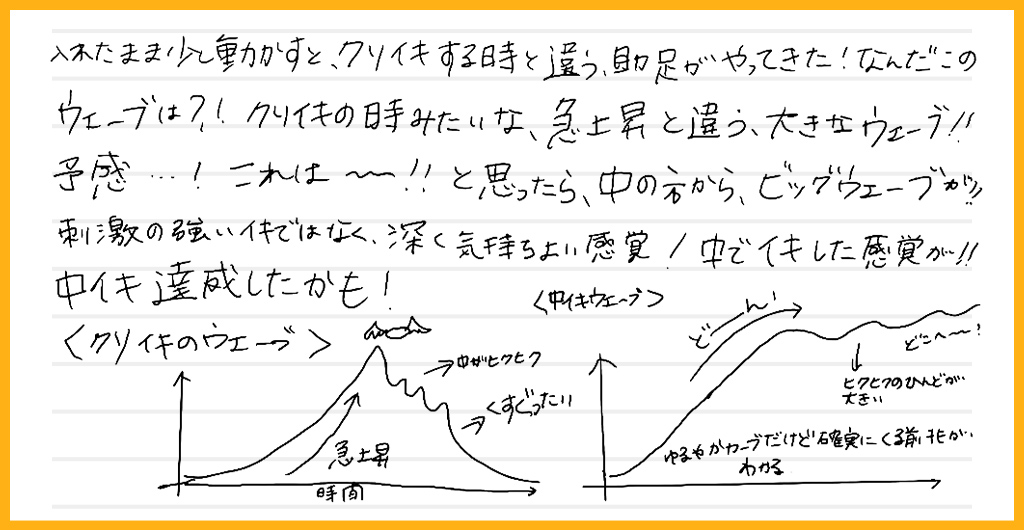 入れたまま少し動かすと、クリイキする時と違う、助走がやってきた！なんだこの
ウェーブは？！ クリイキの時みたいな、急上昇と違う、大きなウェーブ！！
予感…！ これは〜〜！！ と思ったら、中の方から、ビッグウェーブが！！
刺激の強いイキではなく、深く気持ちよい感覚！中でイキした感覚が！！
中イキ達成したかも！
〈クリイキのウェーブ〉
中がヒクヒク
くすぐったい
急上昇
時間
〈中イキウェーブ〉
ど──ん！
どこへ〜〜！
ヒクヒクのひんどが
大きい
ゆるやかカーブだけど確実にくる前兆が
わかる